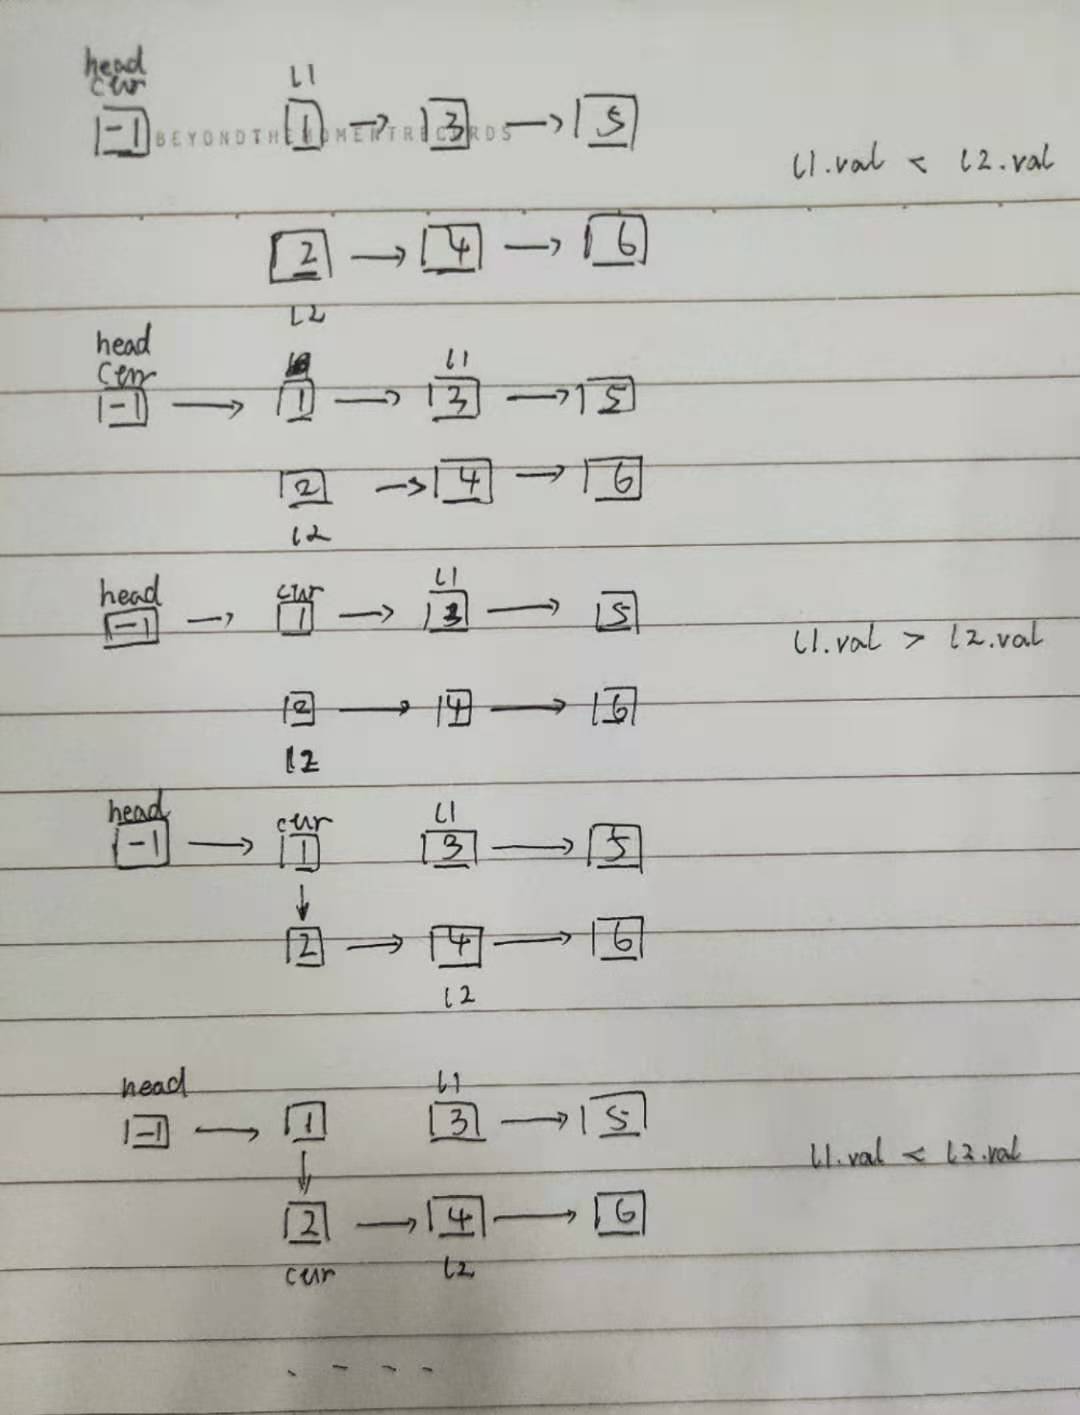 head
cur
l1
-1 1 → 3 → 5
BEYONDTHEMOMENTRECORDS
l1.val < l2.val
2 → 4 → 6
l2
head
cur
l1
-1 → 1 → 3 → 5
2 → 4 → 6
l2
head cur l1
-1 → 1 → 3 → 5
l1.val > l2.val
2 → 4 → 6
l2
head cur l1
-1 → 1 3 → 5
↓
2 → 4 → 6
l2
head l1
-1 → 1 3 → 5
l1.val < l2.val
↓
2 → 4 → 6
cur l2
- - - -